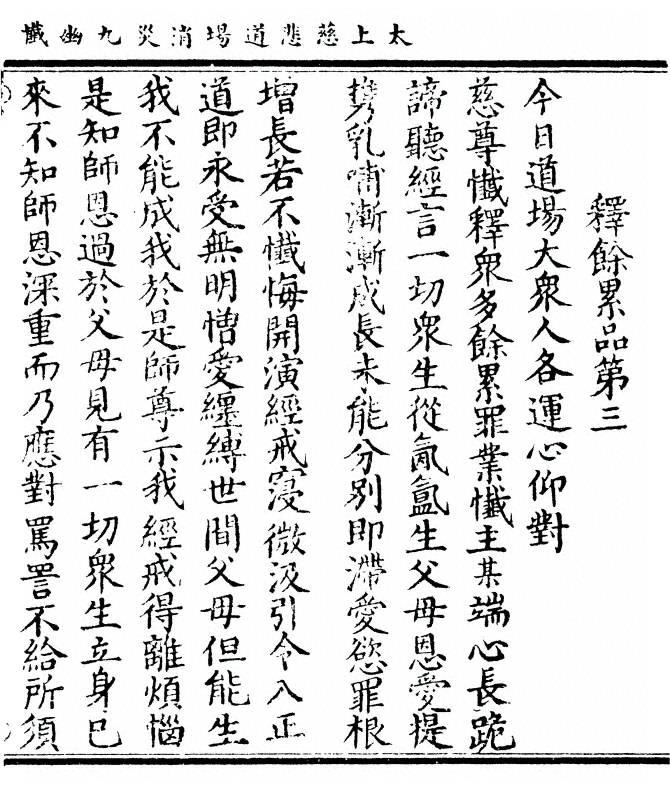 太上慈悲道場消災九幽懺
釋餘累品第三
今日道場大衆人各運心仰對
慈尊懺釋衆多餘累罪業懺主某端心長跪
諦聽經言一切衆生從氤氳生父母恩愛提
攜乳哺漸漸成長未能分別即滯愛慾罪根
增長若不懺悔開演經戒寖微汲引令入正
道即永受無明憎愛纏縛世間父母但能生
我不能成我於是師尊示我經戒得離煩惱
是知師恩過於父母見有一切衆生立身已
來不知師恩深重而乃應對罵詈不給所須